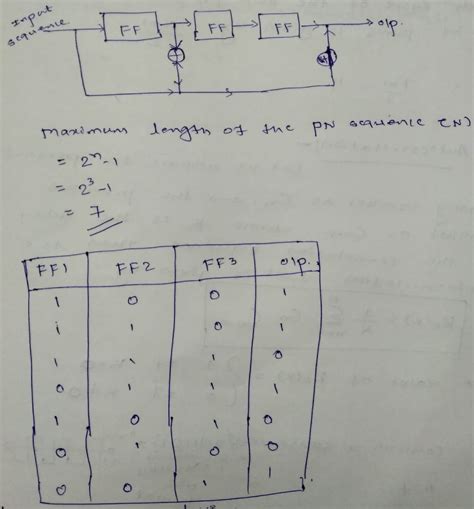 Input
sequence
FF FF FF o/p.
maximum length of the PN sequence (N)
= 2ⁿ-1
= 2³-1
= 7
FF1 FF2 FF3 o/p.
1 0 0 1
1 1 0 1
1 1 1 0
0 1 1 1
1 0 1 0
0 1 0 0
0 0 1 1